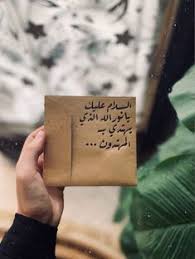 السلام عليك
يا نور الله الذي
يهتدي به
المهتدون ...